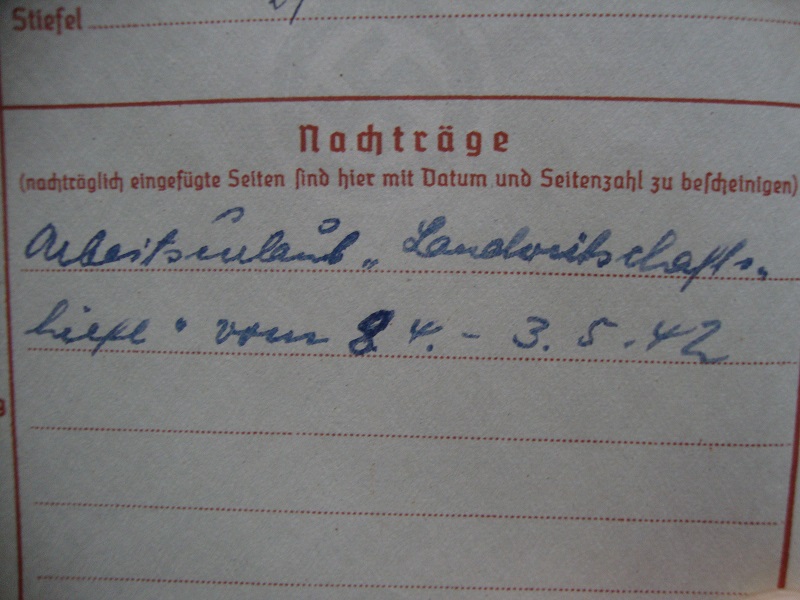 Stiefel
Nachträge
(nachträglich eingefügte Seiten sind hier mit Datum und Seitenzahl zu bescheinigen)
Arbeitsurlaub „Landwirtschafts-
hilfe" vom 8 4. - 3. 5. 42